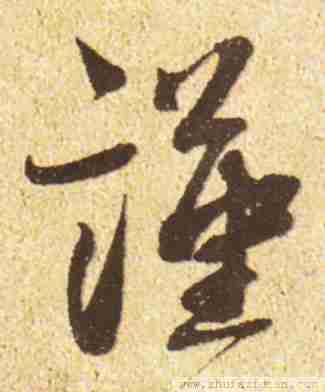 謹
www.zhufaziman.com